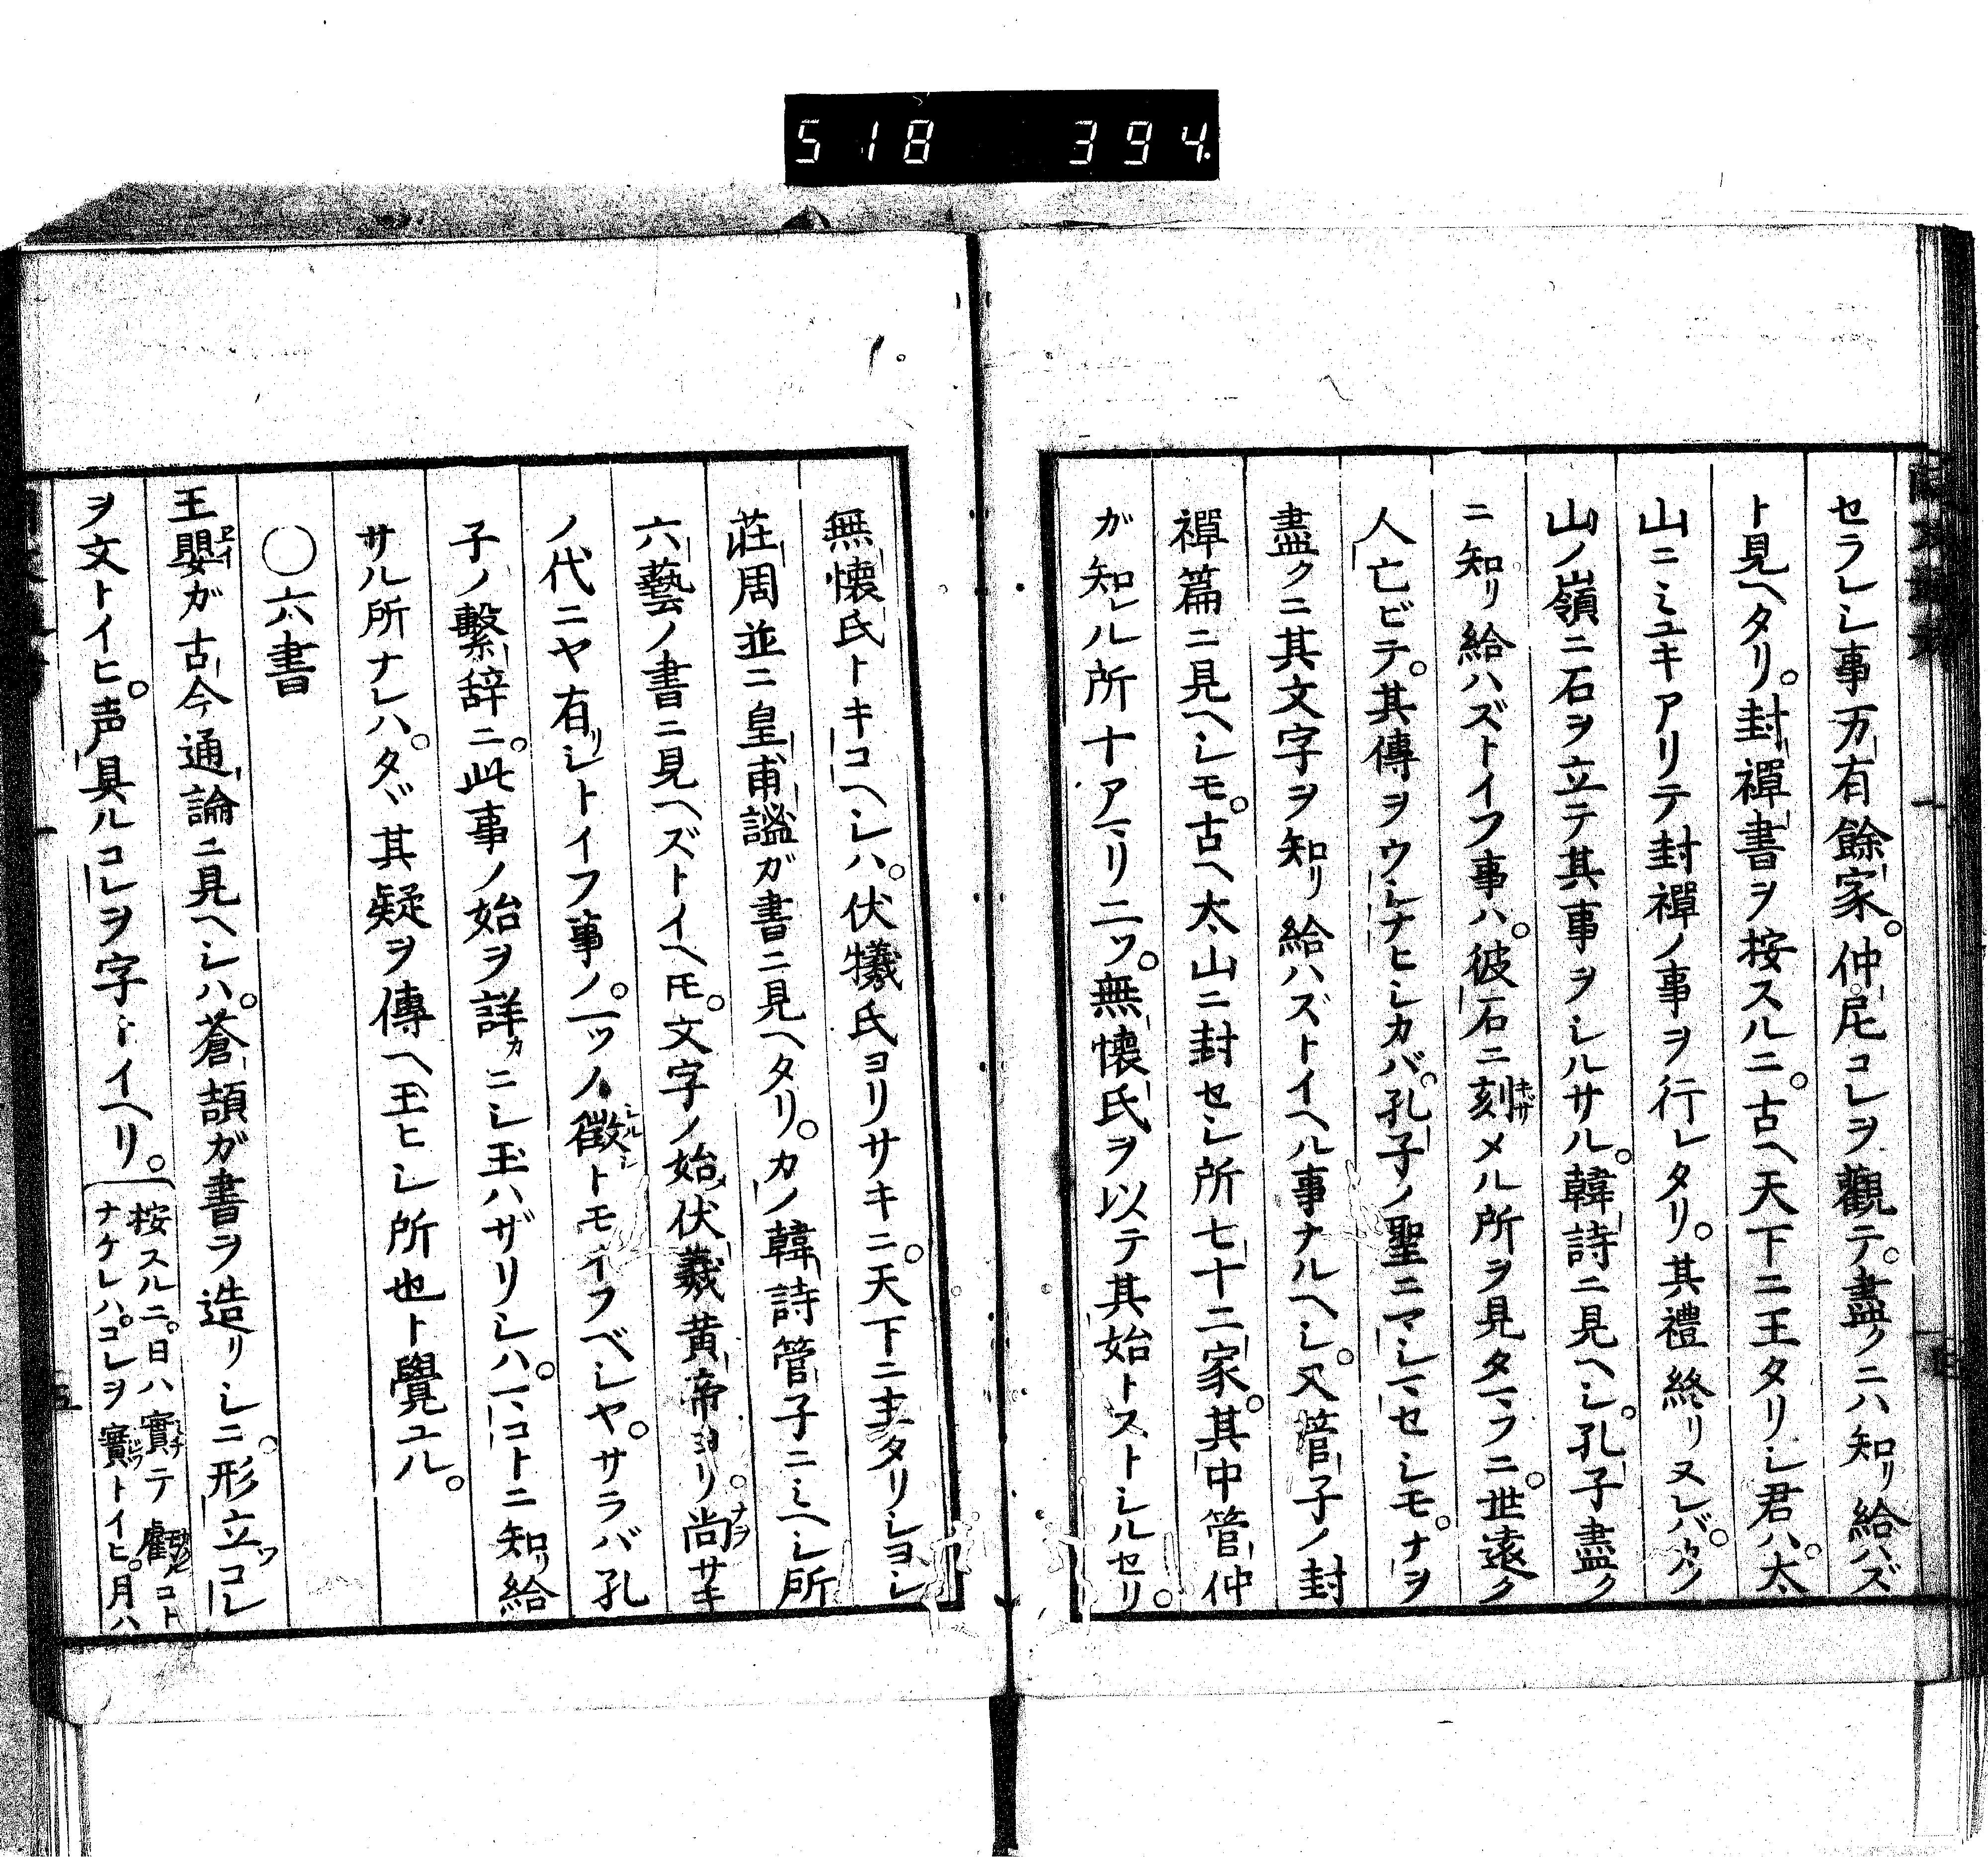 518 394.
セラレシ事万有餘家。仲尼コレヲ觀テ。盡クニハ知リ給ハズ
ト見ヘタリ。封禪書ヲ按スルニ。古ヘ天下ニ王タリシ君ハ。太
山ニミユキアリテ封禪ノ事ヲ行レタリ。其禮終リヌレバ。カノ
山ノ嶺ニ石ヲ立テ其事ヲシルサル。韓詩ニ見ヘシ。孔子盡ク
ニ知リ給ハズトイフ事ハ。彼石ニ刻メル所ヲ見タマフニ。世遠ク
人亡ビテ。其傳ヲウシナヒシカバ。孔子ノ聖ニマシマセシモ。ナヲ
盡クニ其文字ヲ知リ給ハズトイヘル事ナルヘシ。又管子ノ封
禪篇ニ見ヘシモ。古ヘ太山ニ封セシ所七十二家。其中管仲
ガ知レル所十アマリ二ツ。無懐氏ヲ以テ其始トストシルセリ。
無懐氏トキコヘシハ。伏犧氏ヨリサキニ。天下ニ主タリシヨシ
莊周並ニ皇甫謐ガ書ニ見ヘタリ。カノ韓詩管子ニミヘシ所
六藝ノ書ニ見ヘズトイヘ𪜈。文字ノ始伏羲黄帝ヨリ。尚サキ
ノ代ニヤ有シトイフ事ノ。一ツノ徴トモイフベシヤ。サラバ孔
子ノ繫辞ニ。此事ノ始ヲ詳カニシ玉ハザリシハ。マコトニ知リ給
サル所ナレハ。タヾ其疑ヲ傳ヘ玉ヒシ所也ト覺ユル。
〇六書
王嬰ガ古今通論ニ見ヘシハ。蒼頡ガ書ヲ造リシニ。形立ツコレ
ヲ文トイヒ。声具ルコレヲ字トイヘリ。
按スルニ。日ハ實テ虧コト
ナケレハ。コレヲ實トイヒ。月ハ